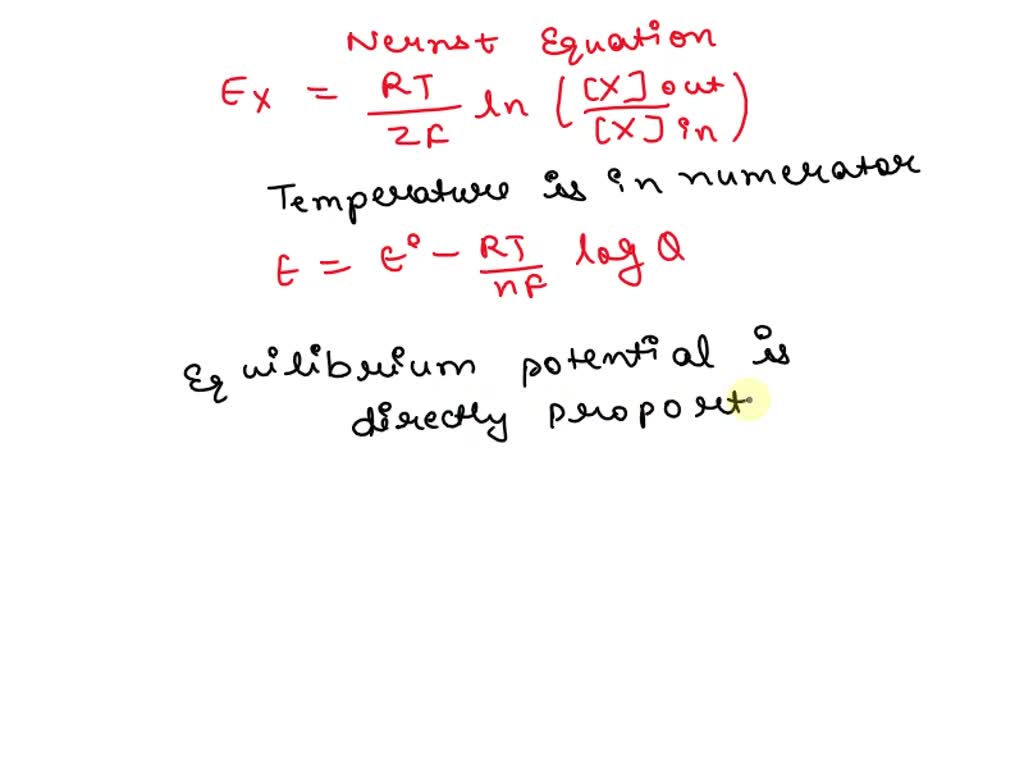 Nernst Equation
Ex = RT/ZF ln ([X]out/[X]in)
Temperature is in numerator
E = E° - RT/nF log Q
Equilibrium potential is
directly proport